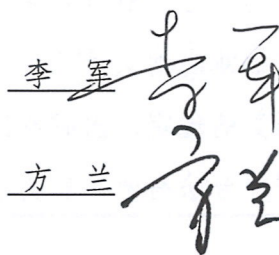 李军 李军
方兰 方兰